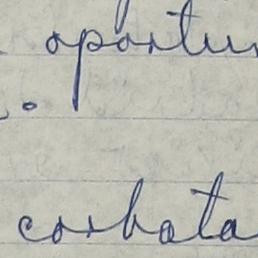 oportun
.
corbata